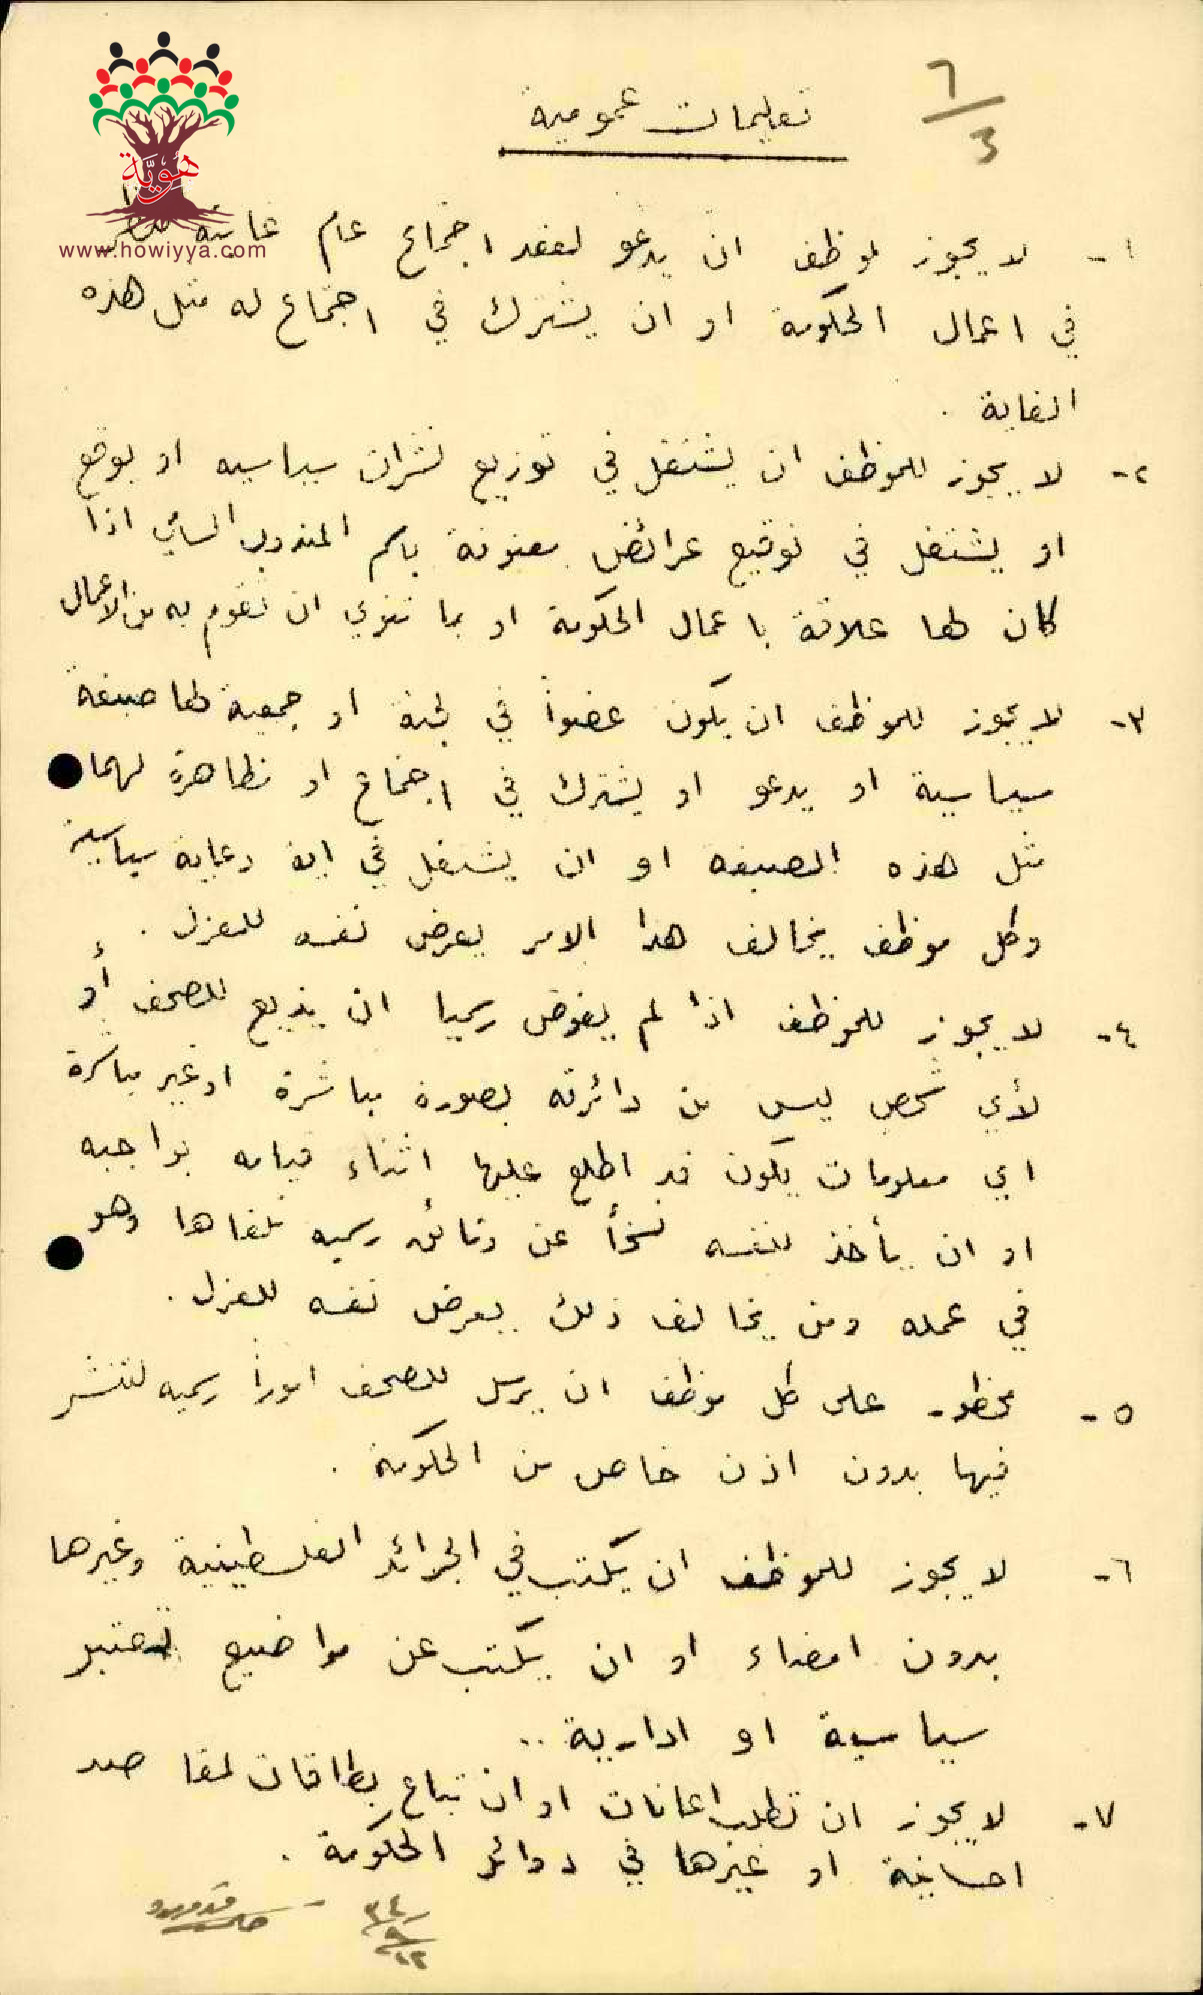 ٦/٣
تعليمات عمومية
هوية
www.howiyya.com
١- لا يجوز لموظف ان يدعو لعقد اجتماع عام غايته
في اعمال الحكومة او ان يشترك في اجتماع له مثل هذه
الغاية .
٢- لا يجوز للموظف ان يشتغل في توزيع نشرات سياسيه او يوقع
او يشتغل في توقيع عرائض معنونة باسم المندوب السامي اذا
كان لها علاقة باعمال الحكومة او بما تنوي ان تقوم به من الاعمال
٣- لا يجوز للموظف ان يكون عضواً في لجنة او جمعية لها صبغة
سياسية او يدعو او يشترك في اجتماع او تظاهرة لهما
مثل هذه الصبغة او ان يشتغل في اية دعاية سياسية
وكل موظف يخالف هذا الامر يعرض نفسه للعزل .
٤- لا يجوز للموظف اذا لم يفوض رسميا ان يذيع للصحف أو
لأي شخص ليس من دائرته بصورة مباشرة او غير مباشرة
اي معلومات يكون قد اطلع عليها اثناء قيامه بواجبه
او ان يأخذ لنفسه نسخاً عن وثائق رسميه تلقاها وهو
في عمله ومن يخالف ذلك يعرض نفسه للعزل .
٥- محظور على كل موظف ان يرسل للصحف امورا رسميه لتنشر
فيها بدون اذن خاص من الحكومة .
٦- لا يجوز للموظف ان يكتب في الجرائد الفلسطينية وغيرها
بدون امضاء او ان يكتب عن مواضيع تعتبر
سياسية او ادارية ..
٧- لا يجوز ان تطلب اعانات او ان تباع بطاقات لمقاصد
احسانية او غيرها في دوائر الحكومة .